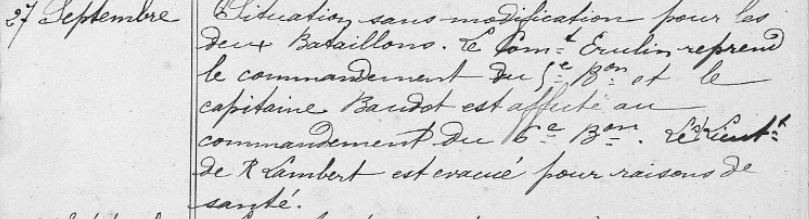 27 Septembre
Situation sans modification pour les
deux Bataillons. Le Com^t Erulin reprend
le commandement du 5^e B^on et le
capitaine Baudot est affecté au
commandement du 6^e B^on. Le Lieut^t
de R Lambert est evacué pour raisons de
santé.